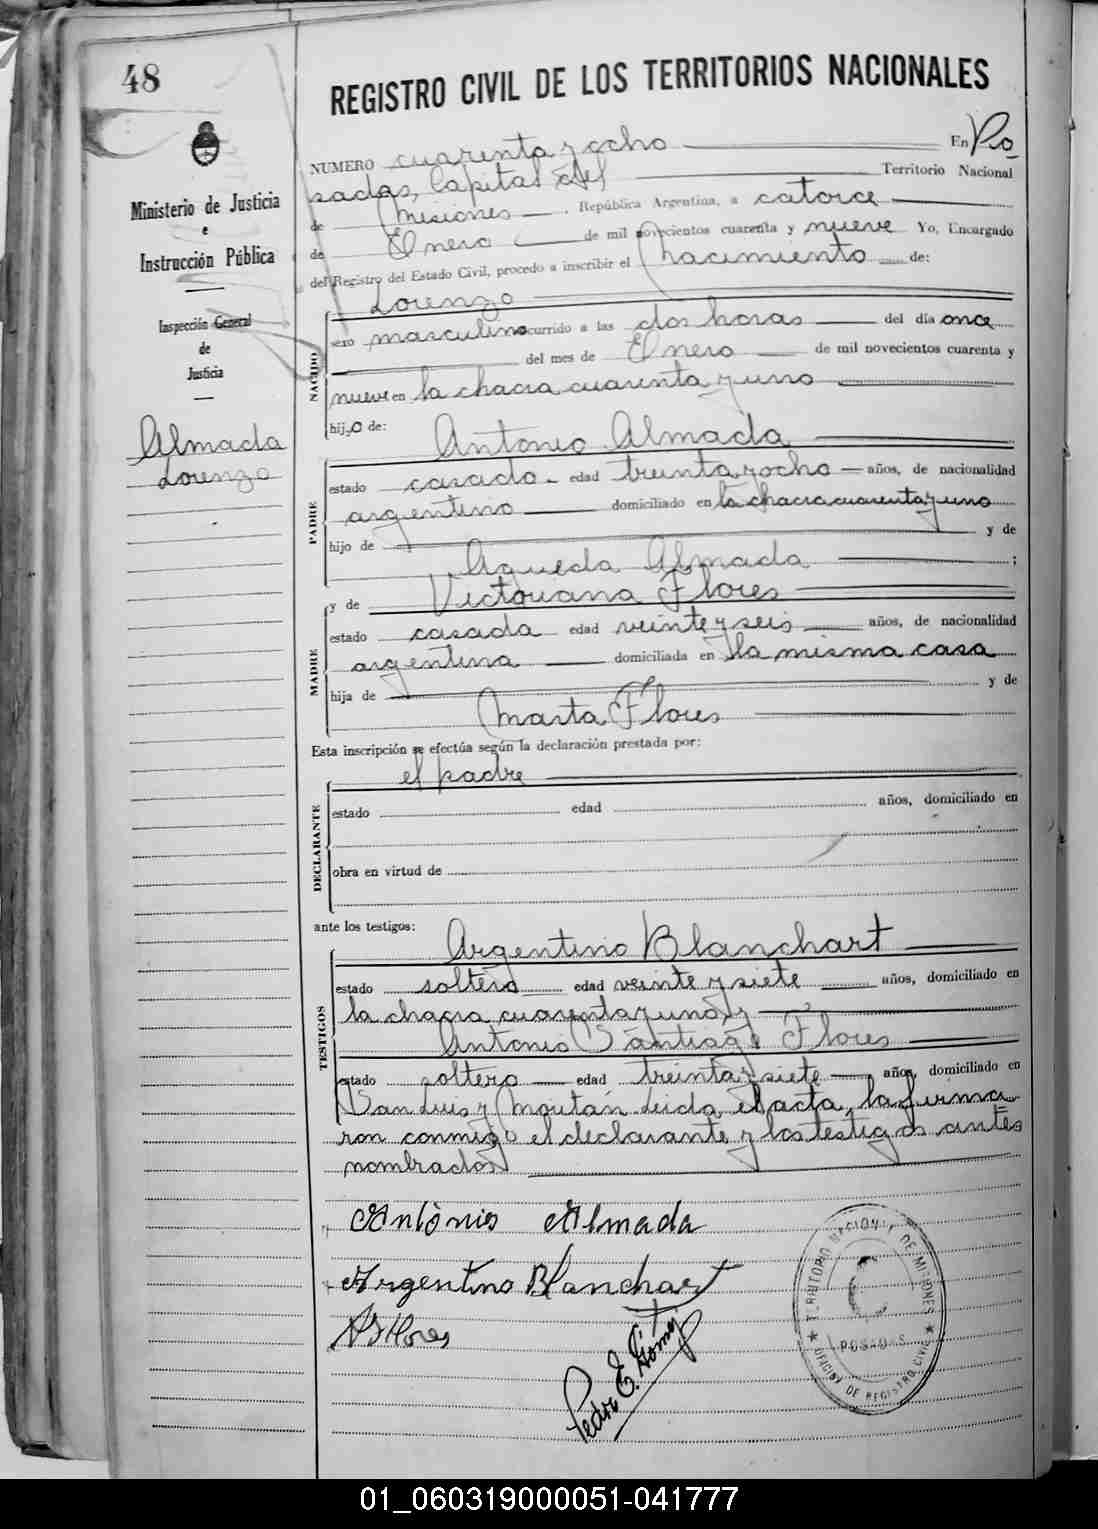 48
REGISTRO CIVIL DE LOS TERRITORIOS NACIONALES
Ministerio de Justicia
e
Instrucción Pública
Inspección General
de
Justicia
Almada
Lorenzo
NUMERO cuarenta y ocho En Po
sadas, Capital del Territorio Nacional
de Misiones República Argentina, a catorce
de Enero de mil novecientos cuarenta y nueve Yo, Encargado
del Registro del Estado Civil, procedo a inscribir el nacimiento de:
Lorenzo
NACIDO
sexo masculino ocurrido a las dos horas del día once
del mes de Enero de mil novecientos cuarenta y
nueve en la chacra cuarenta y uno
hijo de:
Antonio Almada
PADRE
estado casado edad treinta y ocho años, de nacionalidad
argentino domiciliado en la chacra cuarenta y uno
hijo de y de
Agueda Almada ;
y de Victoriana Flores
MADRE
estado casada edad veinte y seis años, de nacionalidad
argentina domiciliada en la misma casa
hija de y de
Marta Flores
Esta inscripción se efectúa según la declaración prestada por:
el padre
DECLARANTE
estado edad años, domiciliado en
obra en virtud de
ante los testigos:
Argentino Blanchart
TESTIGOS
estado soltero edad veinte y siete años, domiciliado en
la chacra cuarenta y uno y
Antonio Santiago Flores
estado soltero edad treinta y siete años, domiciliado en
San Luis y Moritán Leida el acta, la firma
ron conmigo el declarante y los testigos antes
nombrados
Antònio Almada
Argentino Blanchart
ASFlores
Pedro E. Gómez
TERRITORIO NACIONAL DE MISIONES
POSADAS
OFICINA DE REGISTRO CIVIL
01_060319000051-041777